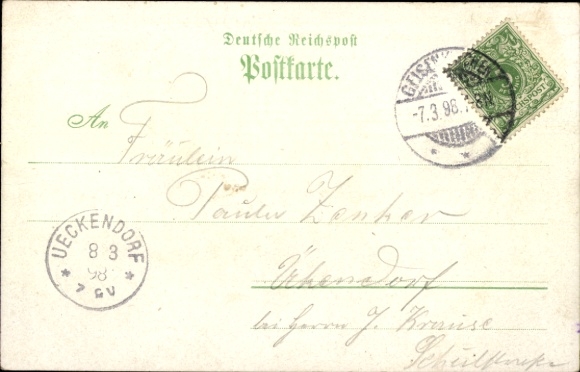 Deutsche Reichspost
Postkarte.
An
Fräulein
Paula Zenker
Ükendorf
bei Herrn J. Krause
Schulstraße
-7.3.98.
UECKENDORF
8 3
98